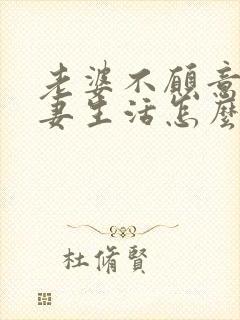 老婆不愿意
妻生活怎麼
杜脩賢